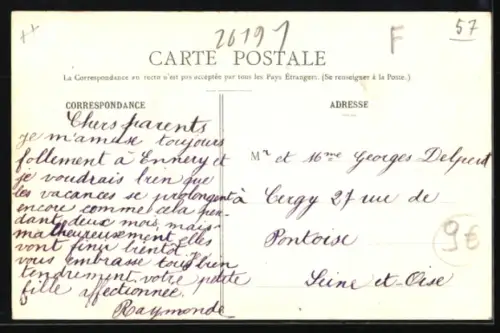 ++
26191
F
57
CARTE POSTALE
La Correspondance au recto n'est pas acceptée par tous les Pays Étrangers. (Se renseigner à la Poste.)
CORRESPONDANCE
Chers parents
je m'amuse toujours
follement à Ennery et
je voudrais bien que
les vacances se prolongent
encore comme cela pen-
dant deux mois, mais
malheureusement elles
vont finir bientôt. Je
vous embrasse tous bien
tendrement votre petite
fille affectionnée.
Raymonde
ADRESSE
Mr et Mme Georges
à Cergy 27 rue de
Pontoise
Seine et-Oise
9€